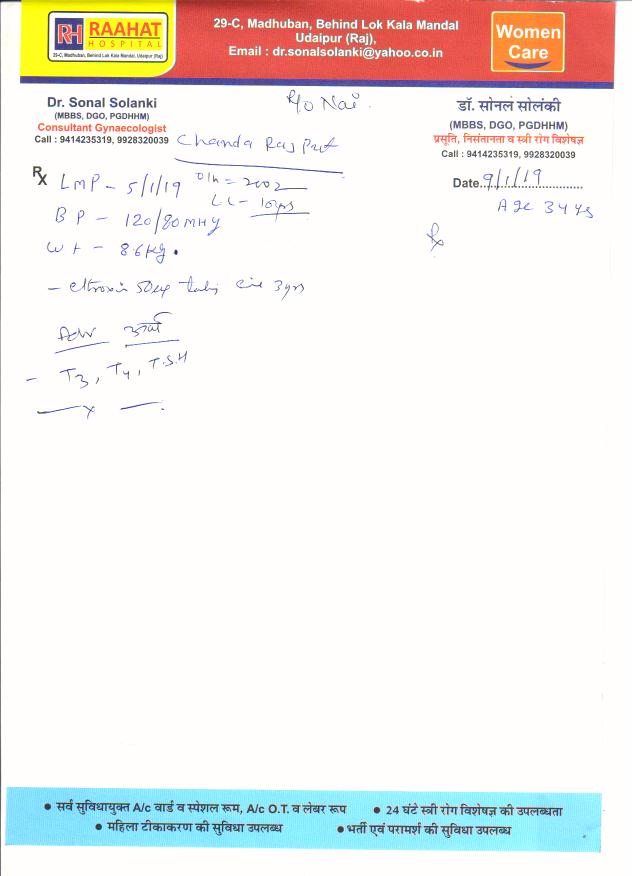 RH RAAHAT
HOSPITAL
29-C, Madhuban, Behind Lok Kala Mandal, Udaipur (Raj)
29-C, Madhuban, Behind Lok Kala Mandal
Udaipur (Raj),
Email : dr.sonalsolanki@yahoo.co.in
Women
Care
Dr. Sonal Solanki
(MBBS, DGO, PGDHHM)
Consultant Gynaecologist
Call : 9414235319, 9928320039
R/o Nai
डॉ. सोनल सोलंकी
(MBBS, DGO, PGDHHM)
प्रसूति, निसंतानता व स्त्री रोग विशेषज्ञ
Call : 9414235319, 9928320039
Chanda Rajput
Date 9/1/19
Age 34 ys
Rx
LMP - 5/1/19
= 2002
LC - 10yrs
BP - 120/80 MHg
Wt - 86kg.
Rx
- eltroxin 50 3yrs
Adv
- T3, T4, T.S.H
— x —
• सर्व सुविधायुक्त A/c वार्ड व स्पेशल रूम, A/c O.T. व लेबर रूप • 24 घंटे स्त्री रोग विशेषज्ञ की उपलब्धता
• महिला टीकाकरण की सुविधा उपलब्ध • भर्ती एवं परामर्श की सुविधा उपलब्ध